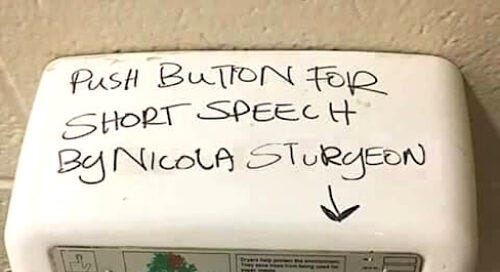 PUSH BUTTON FOR
SHORT SPEECH
By NICOLA STURGEON
Dryers help protect the environment.
They save trees from being used for
paper towels.